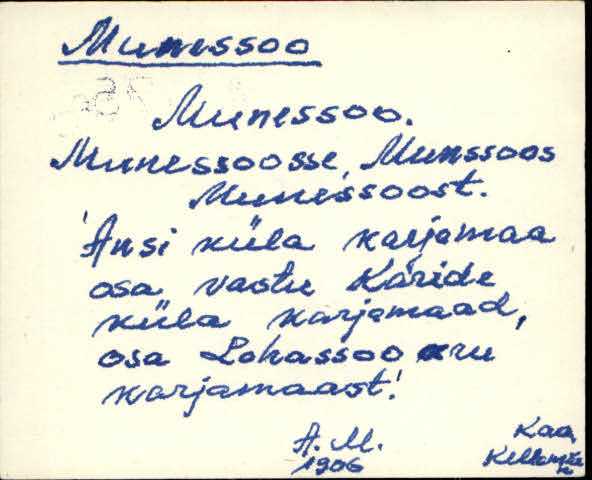 Munessoo
Munessoo.
Munessoosse, Munssoos
Munessoost.
Ansi küla karjamaa
osa vastu Käride
küla karjamaad,
osa Lohassoo
karjamaast!
A. M.
1906
Kaa,